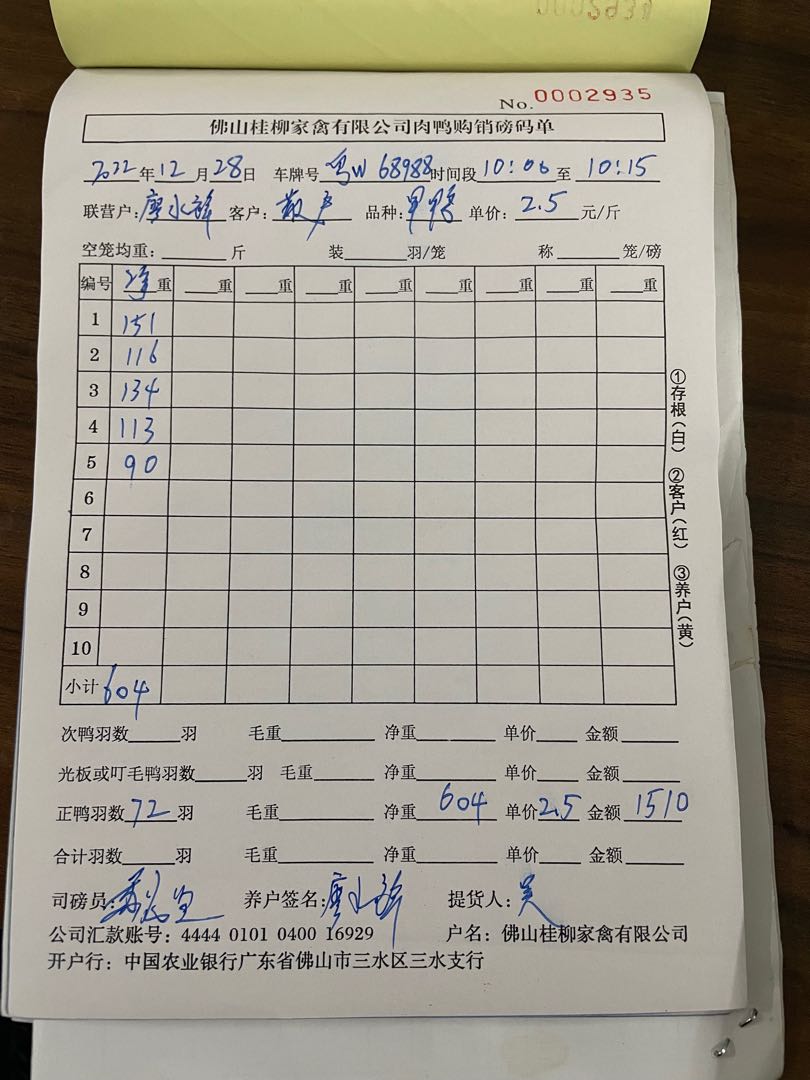 No. 0002935
佛山桂柳家禽有限公司肉鸭购销磅码单
2022年12月28日 车牌号粤W 68988时间段10:06至10:15
联营户:廖水 客户:散户 品种: 单价:2.5元/斤
空笼均重:斤 装羽/笼 称笼/磅
编号 净重 重 重 重 重 重 重 重 重
1 151
2 116
3 134
4 113
5 90
6
7
8
9
10
小计 604
①存根(白) ②客户(红) ③养户(黄)
次鸭羽数羽 毛重 净重 单价 金额
光板或叮毛鸭羽数羽 毛重 净重 单价 金额
正鸭羽数72羽 毛重 净重604 单价2.5 金额1510
合计羽数羽 毛重 净重 单价 金额
司磅员: 养户签名:廖水 提货人:吴
公司汇款账号: 4444 0101 0400 16929 户名: 佛山桂柳家禽有限公司
开户行: 中国农业银行广东省佛山市三水区三水支行